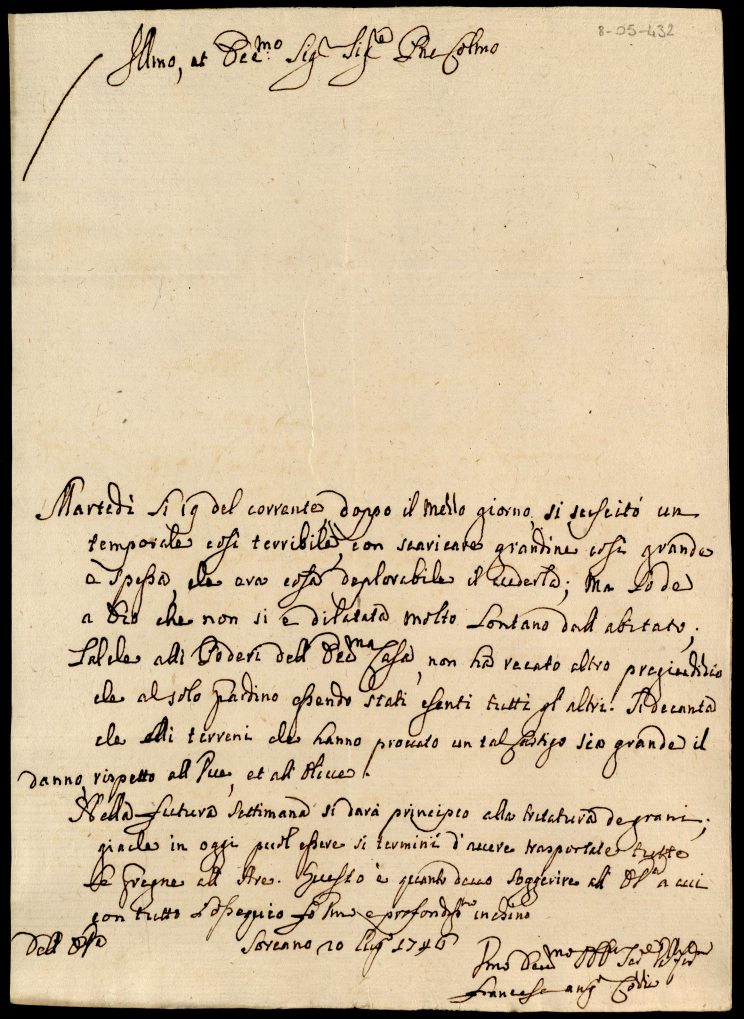 8-05-432
Illmo, et Ecc.mo Sig.e Sig.e Pne Colmo
Martedì li 19 del corrante doppo il mezzo giorno, si suscitò un
temporale così terribile, con scaricare grandine così grande
e spessa, che era cosa deplorabile il uederla; ma Lode
a Dio che non si è dilatata molto Lontano dall abitato,
talche alli Poderi dell Ecc.ma Casa, non ha recato altro pregiudizio
che al solo essendo stati esenti tutti gl'altri. Si decanta
che alli terreni che hanno prouato un tal Castigo sia grande il
danno, rispetto all Vue, et all Oliue.
Nella futura Settimana si darà principio alla tritatura de grani,
giache in oggi puol essere si termini d'auere trasportate tutte
le gregne all Are. Questo è quanto deuo soggerire all a cui
con tutto l'ossequio fo e profond.mo inchino
Dell Soreano 20 Lug.o 1746
Francesc ang.o